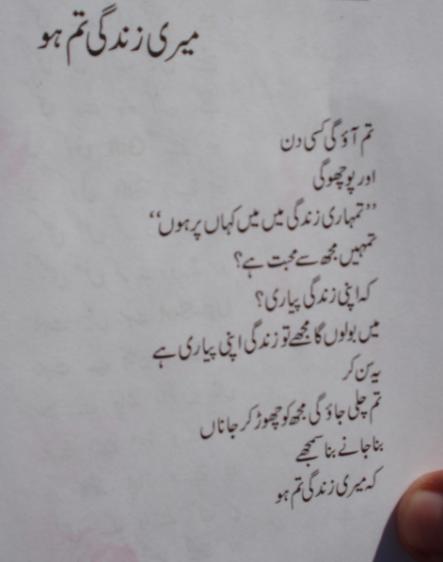 میری زندگی تم ہو
تم آؤ گی کسی دن
اور پوچھو گی
”تمہاری زندگی میں میں کہاں پر ہوں“
تمہیں مجھ سے محبت ہے؟
کہ اپنی زندگی پیاری؟
میں بولوں گا مجھے تو زندگی اپنی پیاری ہے
یہ سن کر
تم چلی جاؤ گی مجھ کو چھوڑ کر جاناں
بنا جانے بنا سمجھے
کہ میری زندگی تم ہو